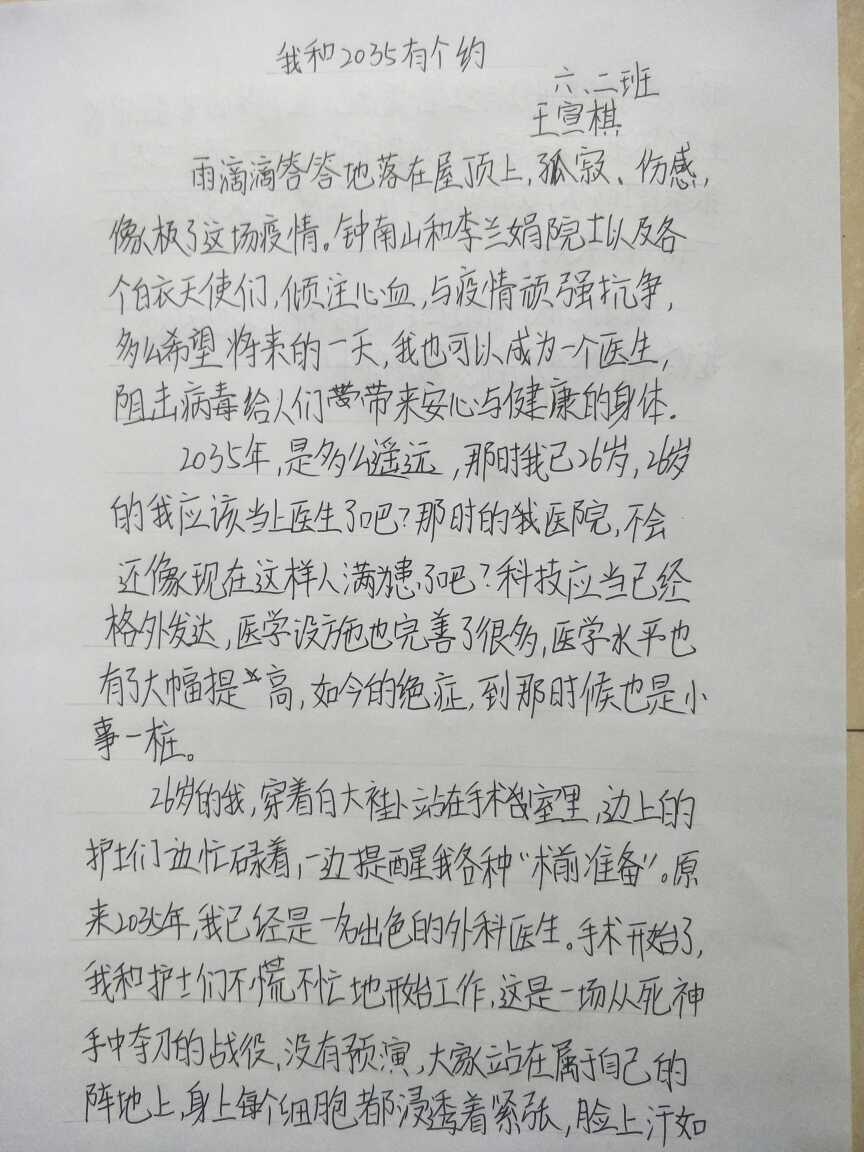 我和2035有个约
六、二班
王宣棋
雨滴滴答答地落在屋顶上，孤寂、伤感，
像极了这场疫情。钟南山和李兰娟院士以及各
个白衣天使们，倾注心血，与疫情顽强抗争，
多么希望将来的一天，我也可以成为一个医生，
阻击病毒给人们带来安心与健康的身体.
2035年，是多么遥远，那时我已26岁，26岁
的我应该当上医生了吧？那时的医院，不会
还像现在这样人满为患了吧？科技应当已经
格外发达，医学设施也完善了很多，医学水平也
有了大幅提高，如今的绝症，到那时候也是小
事一桩。
26岁的我，穿着白大褂站在手术室里，边上的
护士们边忙碌着，一边提醒我各种“术前准备”。原
来2035年，我已经是一名出色的外科医生。手术开始了，
我和护士们不慌不忙地开始工作，这是一场从死神
手中夺刀的战役，没有预演，大家站在属于自己的
阵地上，身上每个细胞都浸透着紧张，脸上汗如